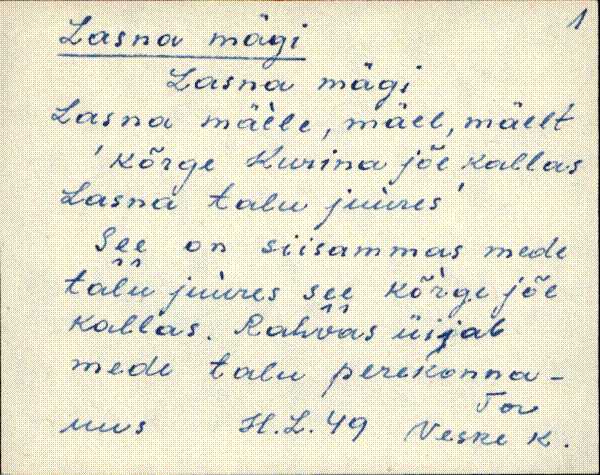 1
Lasna mägi
Lasna mägi
Lasna mäèle, mäel, mäelt
'kõrge Kurina jõe kallas
Lasna talu juùres'
See on siisammas mede
talu juùres see kõrge jõe
kallas. Rahvas üijab
mede talu perekonna-
nus H.L. 49 Tor
Veske k.